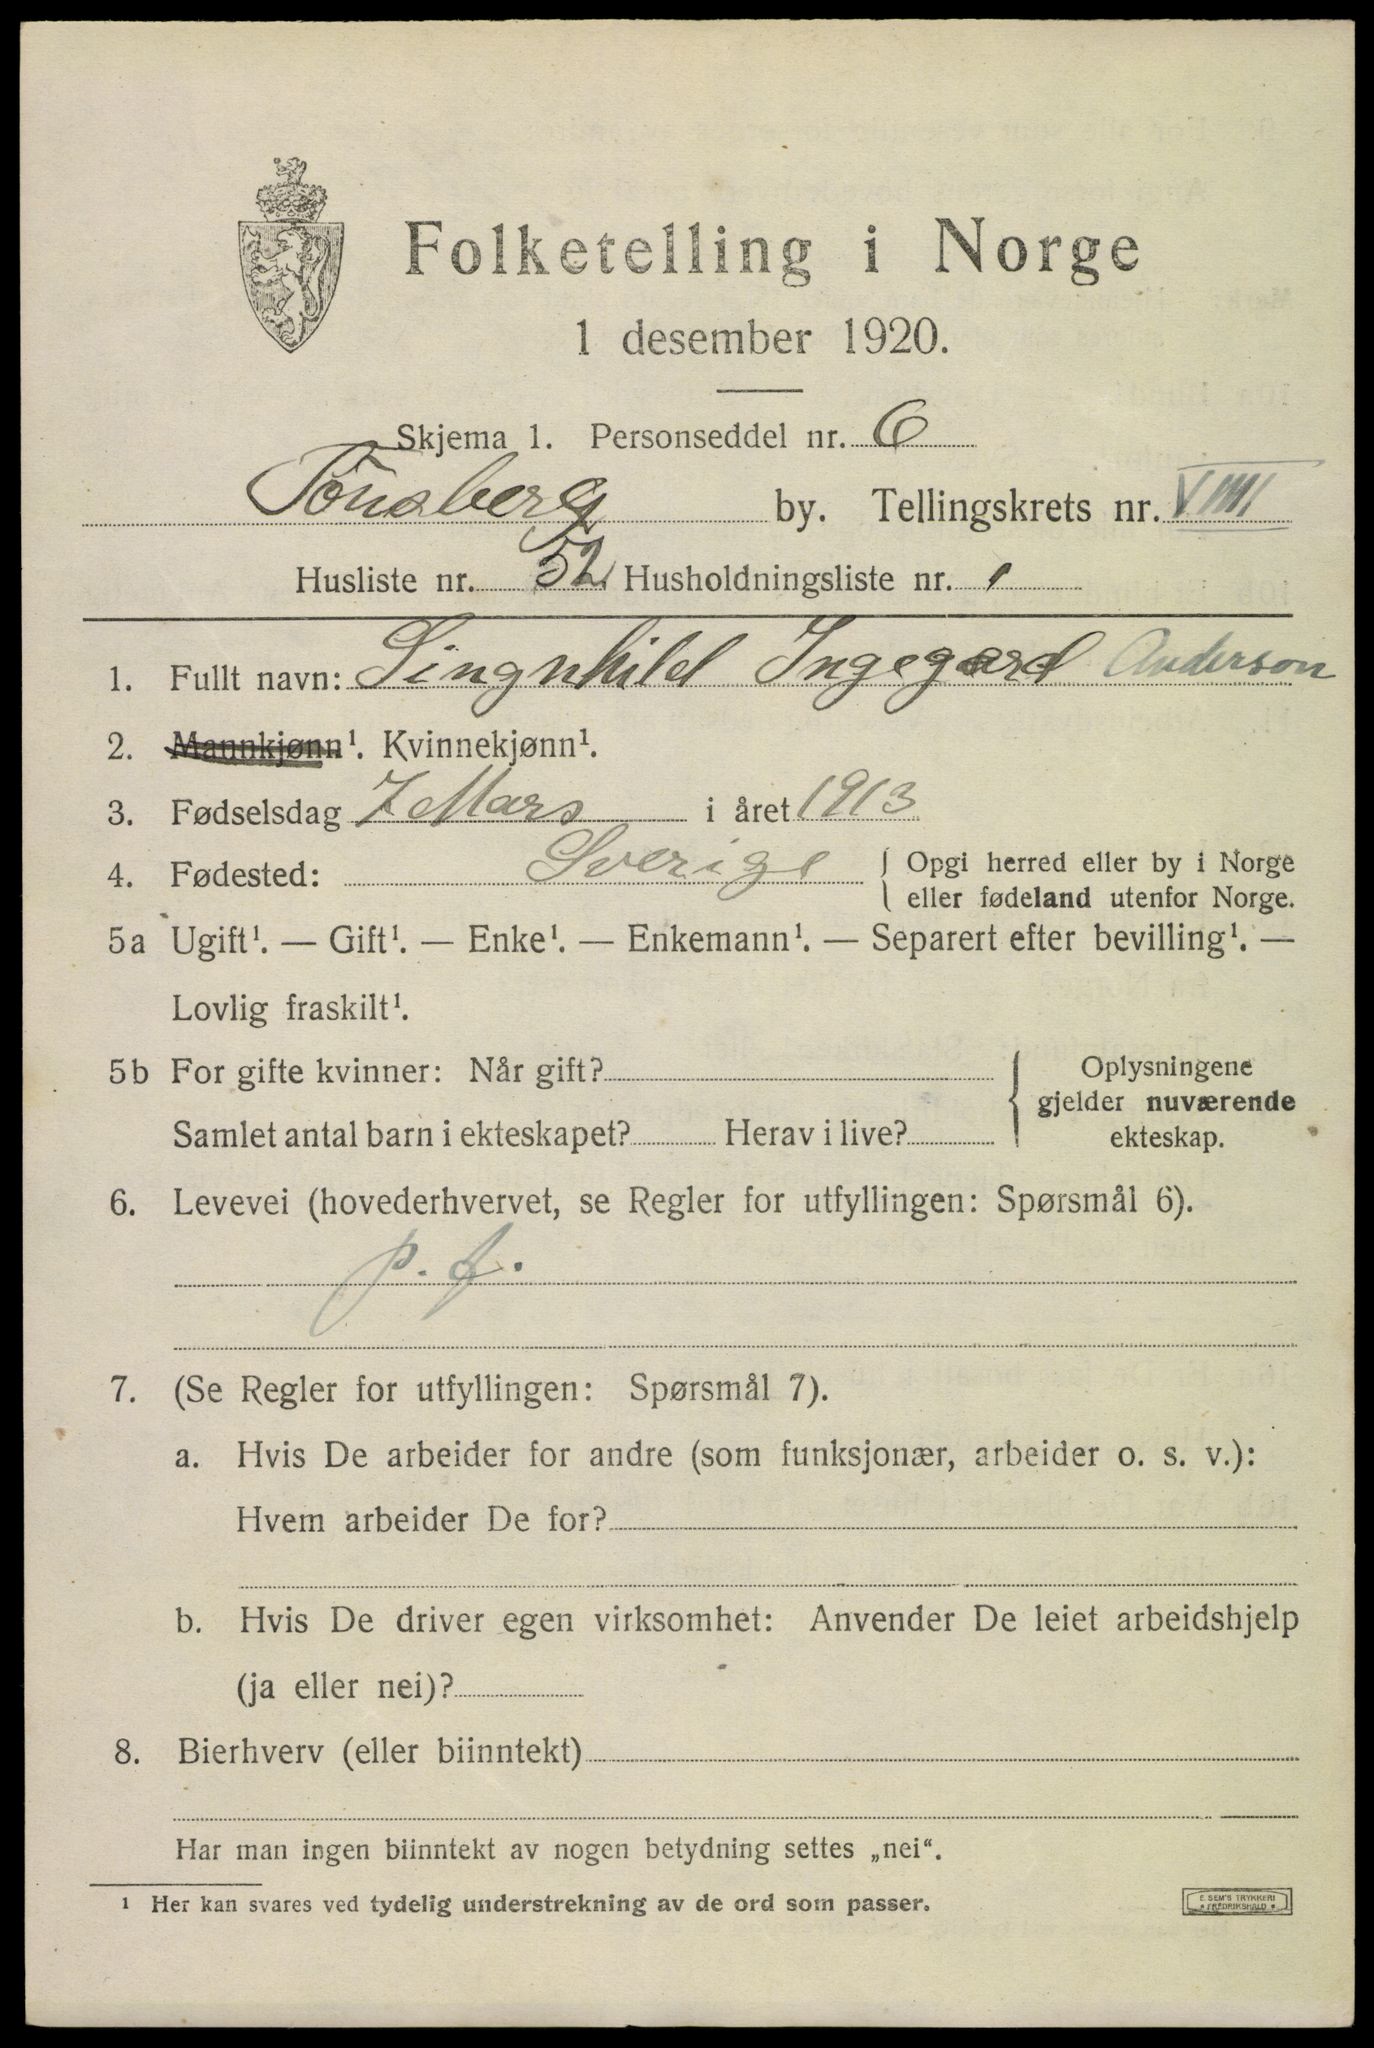 Folketelling i Norge
1 desember 1920.
Skjema 1. Personseddel nr. 6
Tönsberg by. Tellingskrets nr. VIIII
Husliste nr. 52 Husholdningsliste nr. 1
1. Fullt navn: Singnhild Ingegerd Anderson
2. Mannkjønn¹. Kvinnekjønn¹.
3. Fødselsdag 7 Mars i året 1913
4. Fødested: Sverige { Opgi herred eller by i Norge
eller fødeland utenfor Norge.
5a Ugift¹. — Gift¹. — Enke¹. — Enkemann¹. — Separert efter bevilling¹. —
Lovlig fraskilt¹.
5b For gifte kvinner: Når gift? { Oplysningene
gjelder nuværende
Samlet antal barn i ekteskapet? Herav i live? ekteskap.
6. Levevei (hovederhvervet, se Regler for utfyllingen: Spørsmål 6).
p. f.
7. (Se Regler for utfyllingen: Spørsmål 7).
a. Hvis De arbeider for andre (som funksjonær, arbeider o. s. v.):
Hvem arbeider De for?
b. Hvis De driver egen virksomhet: Anvender De leiet arbeidshjelp
(ja eller nei)?
8. Bierhverv (eller biinntekt)
Har man ingen biinntekt av nogen betydning settes „nei“.
¹ Her kan svares ved tydelig understrekning av de ord som passer.
E. SEM'S TRYKKERI
* FREDRIKSHALD *